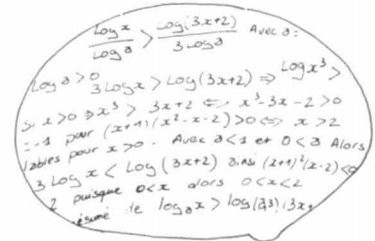 log x / log a > log(3x+2) / 3 log a Avec a:
log a > 0 3 log x > log(3x+2) ⇒ log x³ >
Si x>0 ⇒ x³ > 3x+2 ⇔ x³-3x-2>0
=-1 pour (x+1)(x²-x-2)>0 ⇔ x>2
lables pour x>0. Avec a<1 et 0<a Alors
3 log x < log(3x+2) ainsi (x+1)²(x-2)<0
2 puisque 0<x alors 0<x<2
résumé le logₐx > log(a³)(3x+